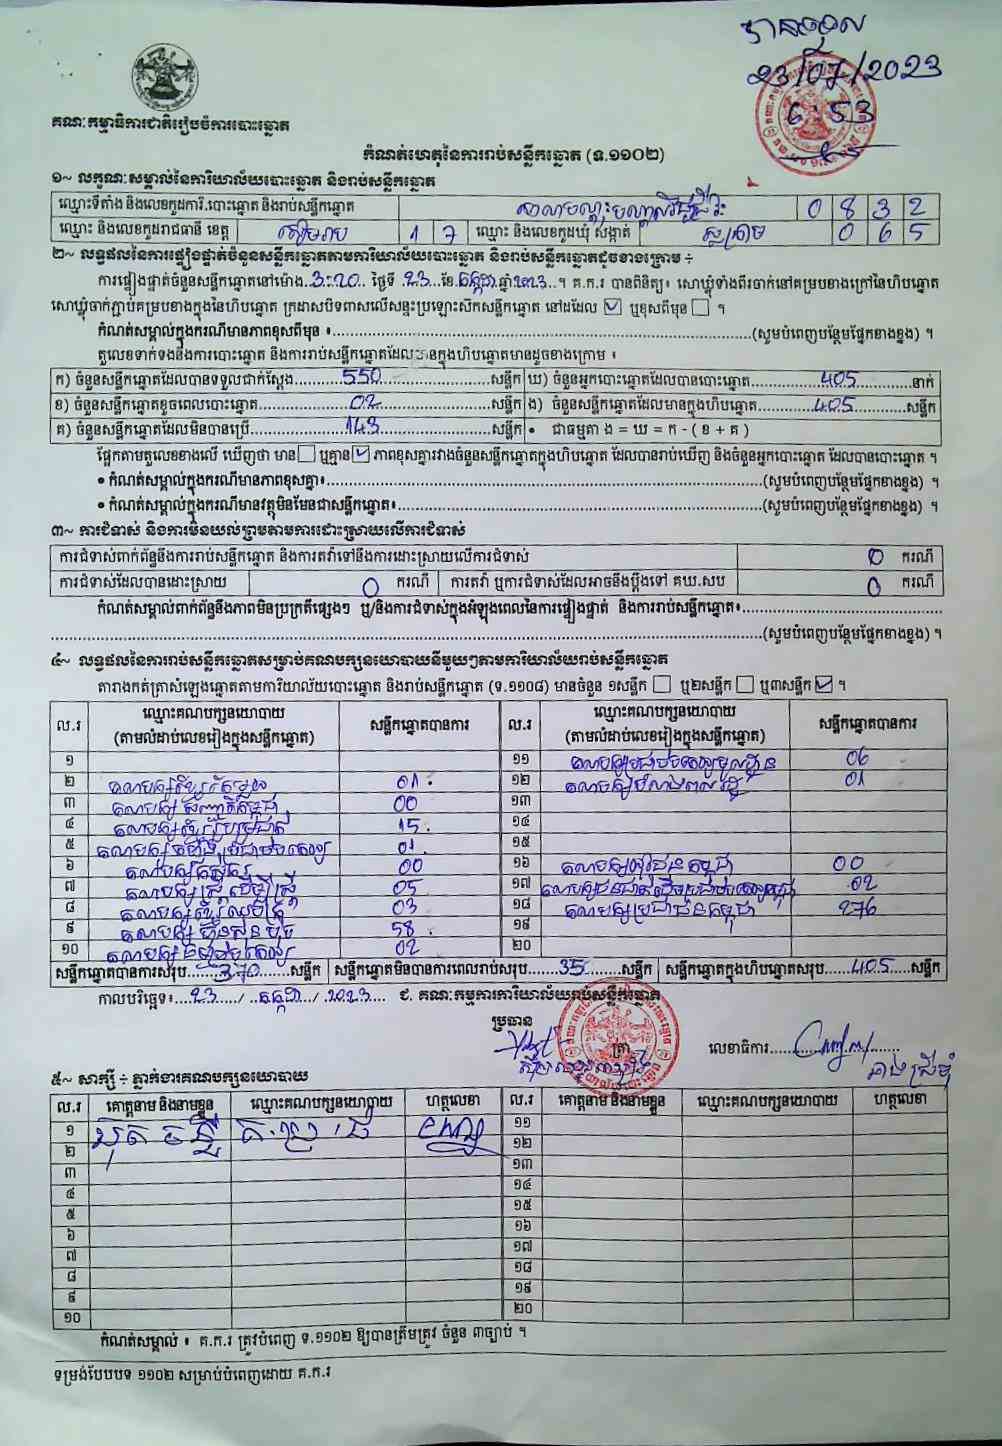 បានចូល
23/07/2023
6:53
គណៈកម្មាធិការជាតិរៀបចំការបោះឆ្នោត
កំណត់ហេតុនៃការរាប់សន្លឹកឆ្នោត (ទ.១១០២)
១~ លក្ខណៈសម្គាល់នៃការិយាល័យបោះឆ្នោត និងរាប់សន្លឹកឆ្នោត
ឈ្មោះទីតាំង និងលេខកូដការិ.បោះឆ្នោត និងរាប់សន្លឹកឆ្នោត 0 8 3 2
ឈ្មោះ និងលេខកូដរាជធានី ខេត្ត សៀមរាប 1 7 ឈ្មោះ និងលេខកូដឃុំ សង្កាត់ ស្លក្រាម 0 6 5
២~ លទ្ធផលនៃការផ្ទៀងផ្ទាត់ចំនួនសន្លឹកឆ្នោតតាមការិយាល័យបោះឆ្នោត និងរាប់សន្លឹកឆ្នោតដូចខាងក្រោម ÷
ការផ្ទៀងផ្ទាត់ចំនួនសន្លឹកឆ្នោតនៅម៉ោង.3:20.. ថ្ងៃទី .23..ខែ.កក្កដា.ឆ្នាំ2023..។ គ.ក.រ បានពិនិត្យ៖ សោឃ្លុំទាំងពីរចាក់នៅគម្របខាងក្រៅនៃហិបឆ្នោត
សោឃ្លុំចាក់ភ្ជាប់គម្របខាងក្នុងនៃហិបឆ្នោត ក្រដាសបិទពាសលើសន្ទះប្រឡោះសិកសន្លឹកឆ្នោត នៅដដែល ☑ ឬខុសពីមុន ☐ ។
កំណត់សម្គាល់ក្នុងករណីមានភាពខុសពីមុន ៖..........(សូមបំពេញបន្ថែមផ្នែកខាងខ្នង) ។
តួលេខទាក់ទងនឹងការបោះឆ្នោត និងការរាប់សន្លឹកឆ្នោតដែលមានក្នុងហិបឆ្នោតមានដូចខាងក្រោម ៖
ក) ចំនួនសន្លឹកឆ្នោតដែលបានទទួលជាក់ស្តែង..........550..........សន្លឹក ឃ) ចំនួនអ្នកបោះឆ្នោតដែលបានបោះឆ្នោត..........405..........នាក់
ខ) ចំនួនសន្លឹកឆ្នោតខូចពេលបោះឆ្នោត..........02..........សន្លឹក ង) ចំនួនសន្លឹកឆ្នោតដែលមានក្នុងហិបឆ្នោត..........405..........សន្លឹក
គ) ចំនួនសន្លឹកឆ្នោតដែលមិនបានប្រើ..........143..........សន្លឹក • ជាធម្មតា ង = ឃ = ក - ( ខ + គ )
ផ្អែកតាមតួលេខខាងលើ ឃើញថា មាន☐ ឬគ្មាន☑ ភាពខុសគ្នារវាងចំនួនសន្លឹកឆ្នោតក្នុងហិបឆ្នោត ដែលបានរាប់ឃើញ និងចំនួនអ្នកបោះឆ្នោត ដែលបានបោះឆ្នោត ។
• កំណត់សម្គាល់ក្នុងករណីមានភាពខុសគ្នា៖..........(សូមបំពេញបន្ថែមផ្នែកខាងខ្នង) ។
• កំណត់សម្គាល់ក្នុងករណីមានវត្ថុមិនមែនជាសន្លឹកឆ្នោត៖..........(សូមបំពេញបន្ថែមផ្នែកខាងខ្នង) ។
៣~ ការជំទាស់ និងការមិនយល់ព្រមតាមការដោះស្រាយលើការជំទាស់
ការជំទាស់ពាក់ព័ន្ធនឹងការរាប់សន្លឹកឆ្នោត និងការតវ៉ាទៅនឹងការដោះស្រាយលើការជំទាស់ 0 ករណី
ការជំទាស់ដែលបានដោះស្រាយ 0 ករណី ការតវ៉ា ឬការជំទាស់ដែលអាចនឹងប្តឹងទៅ គឃ.សប 0 ករណី
កំណត់សម្គាល់ពាក់ព័ន្ធនឹងភាពមិនប្រក្រតីផ្សេងៗ ឬ/និងការជំទាស់ក្នុងអំឡុងពេលនៃការផ្ទៀងផ្ទាត់ និងការរាប់សន្លឹកឆ្នោត៖..........
..........(សូមបំពេញបន្ថែមផ្នែកខាងខ្នង) ។
៤~ លទ្ធផលនៃការរាប់សន្លឹកឆ្នោតសម្រាប់គណបក្សនយោបាយនីមួយៗតាមការិយាល័យរាប់សន្លឹកឆ្នោត
តារាងកត់ត្រាសំឡេងឆ្នោតតាមការិយាល័យបោះឆ្នោត និងរាប់សន្លឹកឆ្នោត (ទ.១១០៨) មានចំនួន ១សន្លឹក ☐ ឬ២សន្លឹក ☐ ឬ៣សន្លឹក ☑ ។
ល.រ ឈ្មោះគណបក្សនយោបាយ (តាមលំដាប់លេខរៀងក្នុងសន្លឹកឆ្នោត) សន្លឹកឆ្នោតបានការ ល.រ ឈ្មោះគណបក្សនយោបាយ (តាមលំដាប់លេខរៀងក្នុងសន្លឹកឆ្នោត) សន្លឹកឆ្នោតបានការ
១ ១១ គណបក្សប្រជាធិបតេយ្យមូលដ្ឋាន 06
២ គណបក្សខ្មែររួបរួម 01 ១២ គណបក្ស 01
៣ គណបក្ស 00 ១៣
៤ គណបក្ស 15 ១៤
៥ គណបក្ស ប្រជាធិបតេយ្យ 01 ១៥
៦ គណបក្សកសិករ 00 ១៦ គណបក្សយុវជនកម្ពុជា 00
៧ គណបក្សស្ត្រីដើម្បីស្ត្រី 05 ១៧ គណបក្សជនជាតិដើមប្រជាធិបតេយ្យកម្ពុជា 02
៨ គណបក្ស 03 ១៨ គណបក្សប្រជាជនកម្ពុជា 276
៩ គណបក្សហ្វ៊ុនស៊ិនប៉ិច 58 ១៩
១០ គណបក្ស 02 ២០
សន្លឹកឆ្នោតបានការសរុប.......370.......សន្លឹក សន្លឹកឆ្នោតមិនបានការពេលរាប់សរុប.......35.......សន្លឹក សន្លឹកឆ្នោតក្នុងហិបឆ្នោតសរុប.....405.....សន្លឹក
កាលបរិច្ឆេទ៖....23...../ ..កក្កដា../ .2023.... ជ. គណៈកម្មការការិយាល័យរាប់សន្លឹកឆ្នោត
ប្រធាន
ត្រា លេខាធិការ..........
៥~ សាក្សី ÷ ភ្នាក់ងារគណបក្សនយោបាយ
ល.រ គោត្តនាម និងនាមខ្លួន ឈ្មោះគណបក្សនយោបាយ ហត្ថលេខា ល.រ គោត្តនាម និងនាមខ្លួន ឈ្មោះគណបក្សនយោបាយ ហត្ថលេខា
១ គ.ប្រ.ជ ១១
២ ១២
៣ ១៣
៤ ១៤
៥ ១៥
៦ ១៦
៧ ១៧
៨ ១៨
៩ ១៩
១០ ២០
កំណត់សម្គាល់ ៖ គ.ក.រ ត្រូវបំពេញ ទ.១១០២ ឱ្យបានត្រឹមត្រូវ ចំនួន ៣ច្បាប់ ។
ទម្រង់បែបបទ ១១០២ សម្រាប់បំពេញដោយ គ.ក.រ